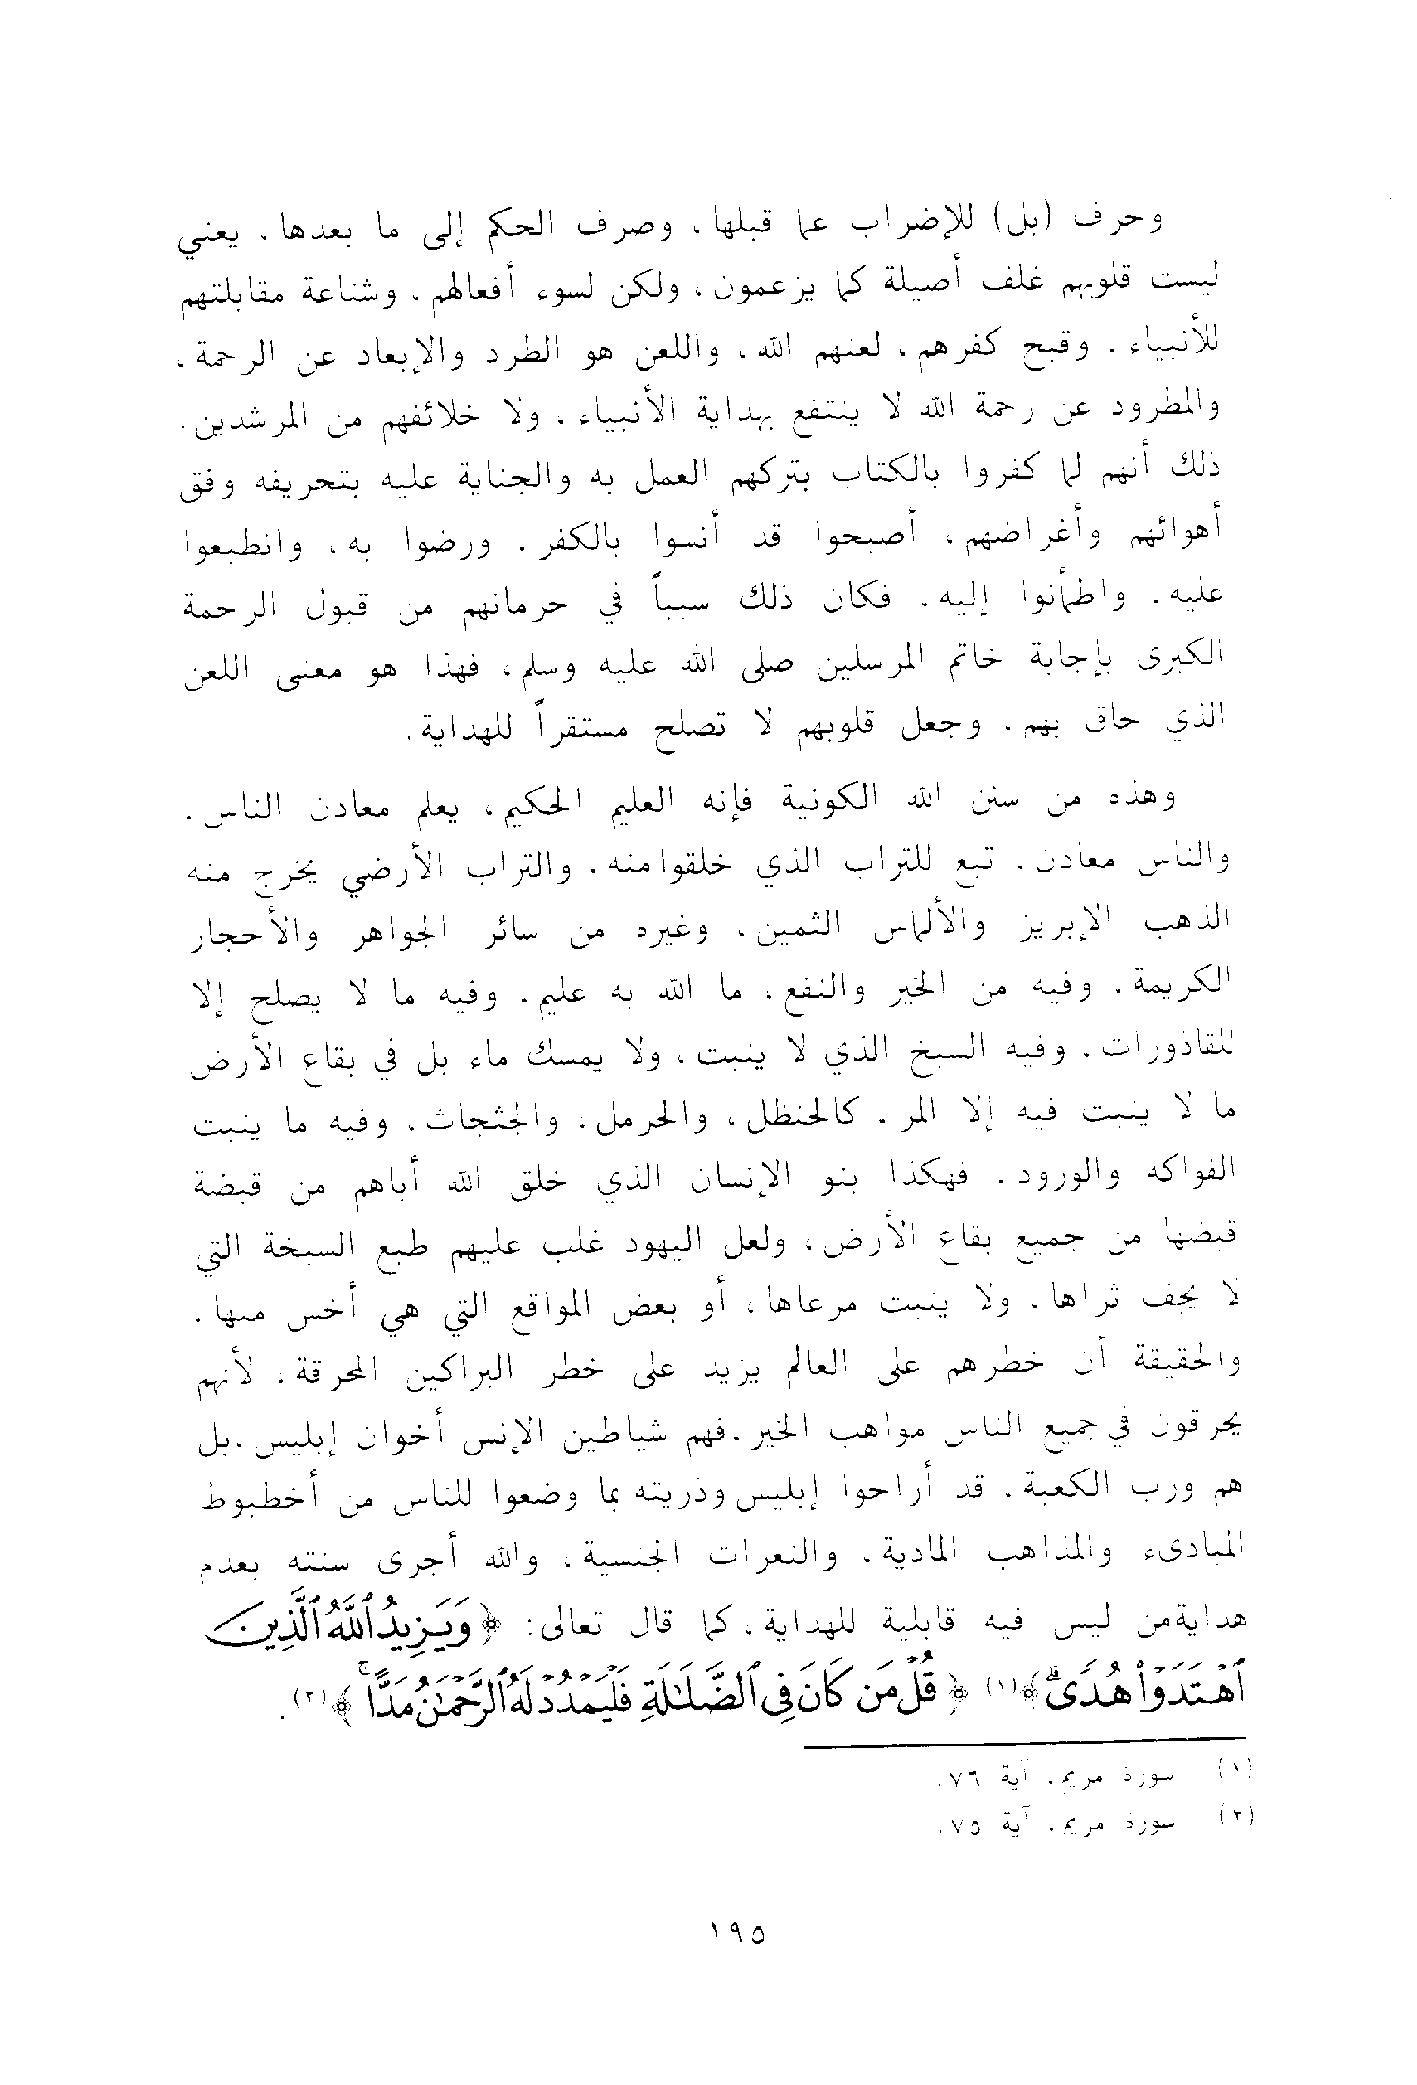 وحرف (بل) للإضراب عما قبلها، وصرف الحكم إلى ما بعدها، يعني
ليست قلوبهم غلف أصيلة كما يزعمون، ولكن لسوء أفعالهم، وشناعة مقابلتهم
للأنبياء، وقبح كفرهم، لعنهم الله، واللعن هو الطرد والإبعاد عن الرحمة،
والمطرود عن رحمة الله لا ينتفع بهداية الأنبياء، ولا خلائفهم من المرشدين.
ذلك أنهم لما كفروا بالكتاب بتركهم العمل به والجناية عليه بتحريفه وفق
أهوائهم وأغراضهم، أصبحوا قد أنسوا بالكفر، ورضوا به، وانطبعوا
عليه، واطمأنوا إليه، فكان ذلك سبباً في حرمانهم من قبول الرحمة
الكبرى بإجابة خاتم المرسلين صلى الله عليه وسلم، فهذا هو معنى اللعن
الذي حاق بهم، وجعل قلوبهم لا تصلح مستقراً للهداية.
وهذه من سنن الله الكونية فإنه العليم الحكيم، يعلم معادن الناس،
والناس معادن، تبع للتراب الذي خلقوا منه، والتراب الأرضي يخرج منه
الذهب الإبريز والألماس الثمين، وغيره من سائر الجواهر والأحجار
الكريمة، وفيه من الخير والنفع، ما الله به عليم، وفيه ما لا يصلح إلا
للقاذورات، وفيه السبخ الذي لا ينبت، ولا يمسك ماء بل في بقاع الأرض
ما لا ينبت فيه إلا المر، كالحنظل، والحرمل، والجثجاث، وفيه ما ينبت
الفواكه والورود، فهكذا بنو الإنسان الذي خلق الله أباهم من قبضة
قبضها من جميع بقاع الأرض، ولعل اليهود غلب عليهم طبع السبخة التي
لا يجف ثراها، ولا ينبت مرعاها، أو بعض المواقع التي هي أخس منها،
والحقيقة أن خطرهم على العالم يزيد على خطر البراكين المحرقة، لأنهم
يحرقون في جميع الناس مواهب الخير، فهم شياطين الإنس أخوان إبليس، بل
هم ورب الكعبة، قد أراحوا إبليس وذريته بما وضعوا للناس من أخطبوط
المبادىء والمذاهب المادية، والنعرات الجنسية، والله أجرى سنته بعدم
هداية من ليس فيه قابلية للهداية، كما قال تعالى: ﴿وَيَزِيدُ اللَّهُ الَّذِينَ
اهْتَدَوْا هُدًى﴾(١) ﴿قُلْ مَن كَانَ فِي الضَّلَالَةِ فَلْيَمْدُدْ لَهُ الرَّحْمَٰنُ مَدًّا﴾(٢).
(١) سورة مريم، آية ٧٦.
(٢) سورة مريم، آية ٧٥.
١٩٥